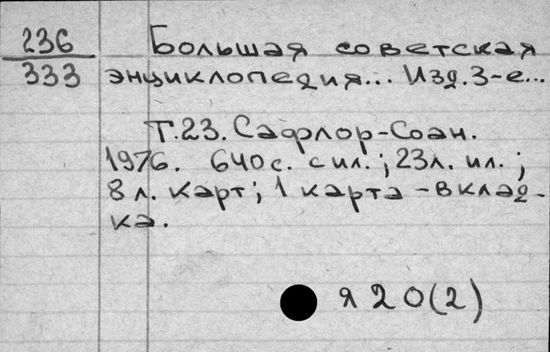 236
333
Большая советская
энциклопедия... Изд. 3-е...
Т.23. Сафлор-Соан.
1976. 640с. с ил.; 23л. ил.;
8 л. карт; 1 карта-вклад-
ка.
я 20(2)